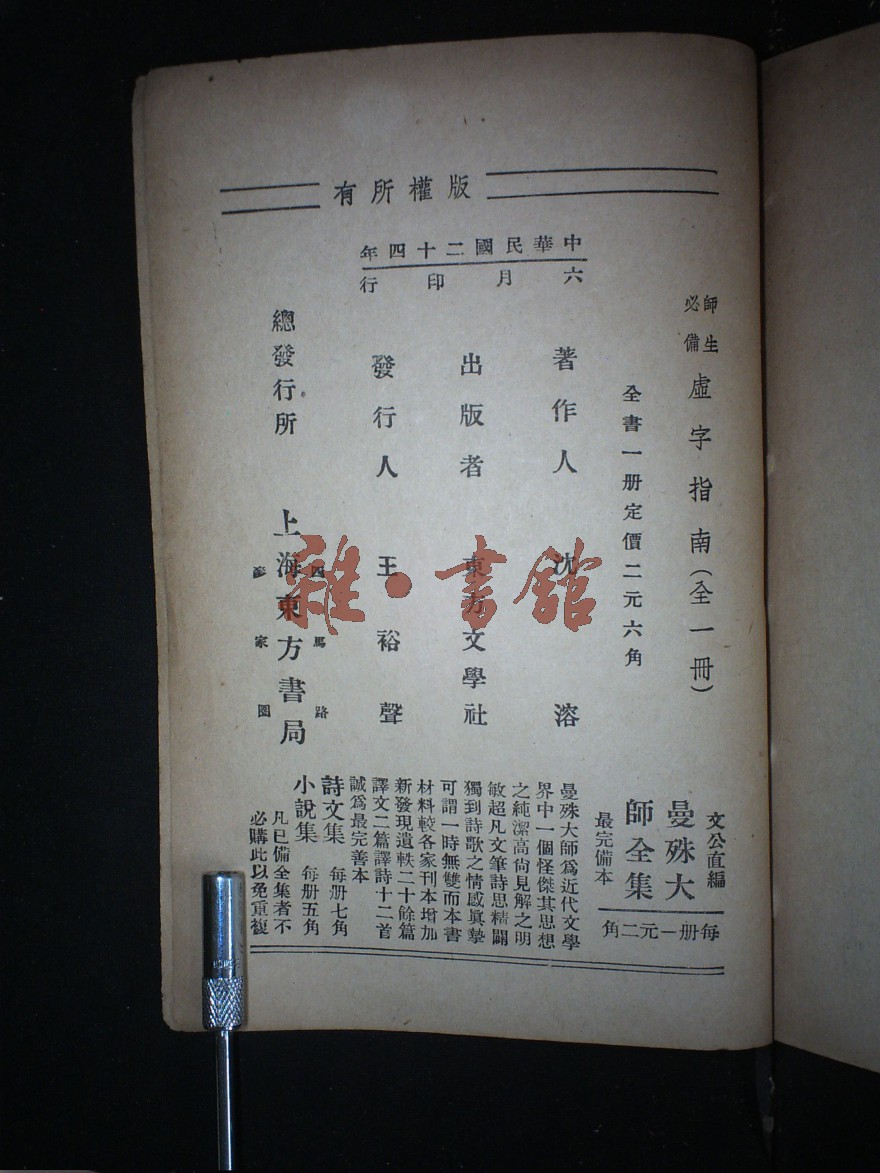 版權所有
中華民國二十四年
六月印行
師生
必備
虛字指南(全一冊)
全書一册定價二元六角
著作人 沈溶
出版者 東方文學社
發行人 王裕聲
總發行所 上海東方書局
四馬路
麥家圈
文公直編
曼殊大
師全集
最完備本
每册一元二角
曼殊大師爲近代文學
界中一個怪傑其思想
之純潔高尙見解之明
敏超凡文筆詩思精闢
獨到詩歌之情感眞摯
可謂一時無雙而本書
材料較各家刊本增加
新發現遺軼二十餘篇
譯文二篇譯詩十二首
誠爲最完善本
詩文集 每册七角
小說集 每册五角
凡已備全集者不
必購此以免重複
雜·書館